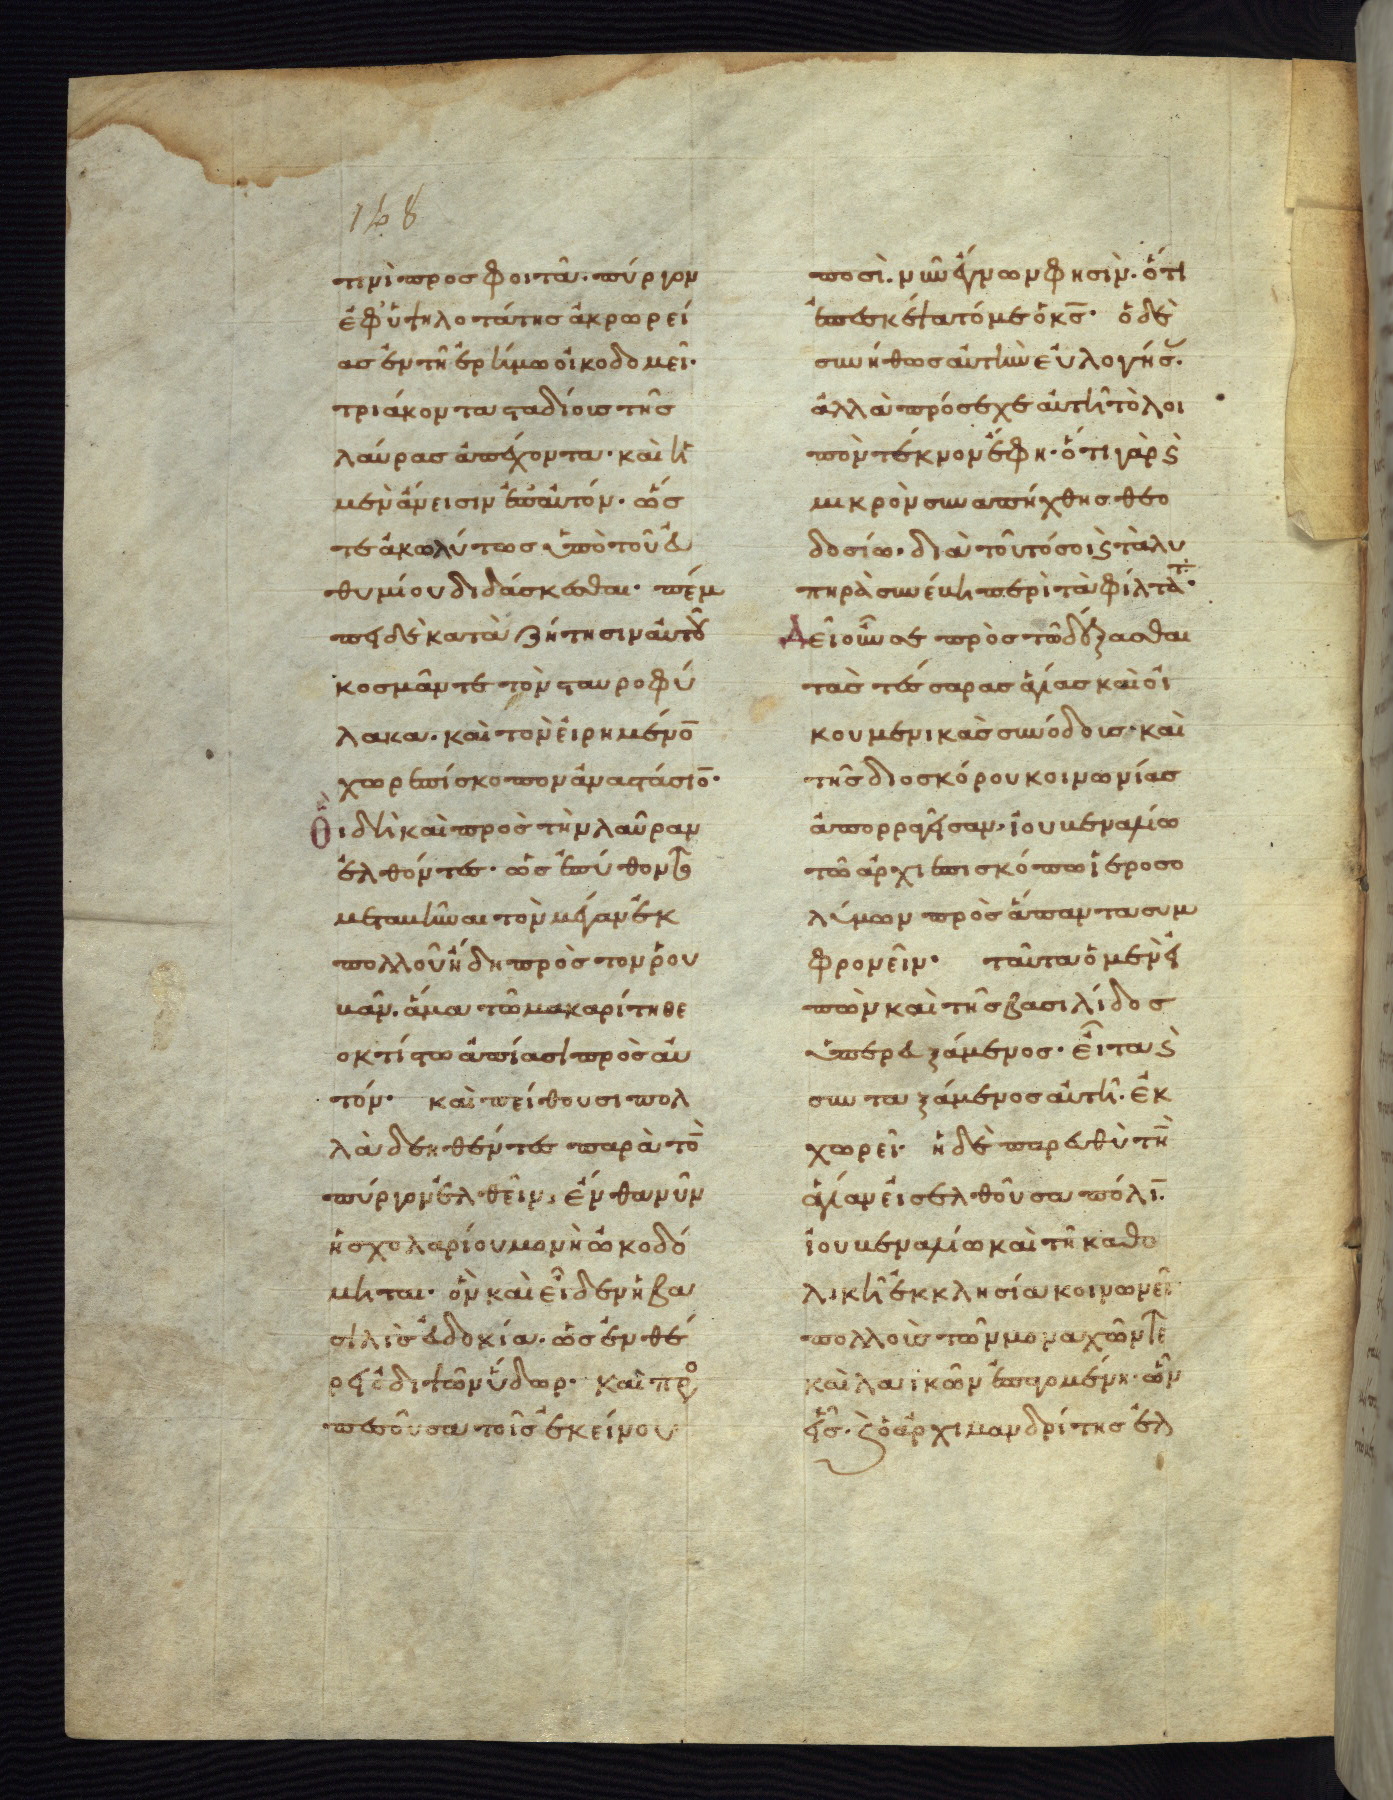 168
τινὶ προσφοιτᾶν. πύργον
ἐφ ὑψηλοτάτης ἀκρωρεί
ας ἐν τῇ ἐρήμω οἰκοδομεῖ.
τριάκοντα σταδίοις τῆς
λαύρας ἀπέχοντα. καὶ ἡ
μὲν ἄνεισιν ἐπ αὐτόν. ὥς
τε ἀκωλύτως ὑπὸ τοῦ εὐ
θυμίου διδάσκεσθαι. πέμ
πει δὲ κατὰ ζήτησιν αὐτοῦ
κοσμᾶν τε τὸν σταυροφύ
λακα. καὶ τὸν εἰρημένο̅
χωρεπίσκοπον ἀναστάσιο̅.
Οἳ δὴ καὶ πρὸς τὴν λαῦραν
ἐλθόντες. ὡς ἐπύθοντο
μεταμῆναι τὸν μέγαν ἐκ
πολλοῦ ἤδη πρὸς τὸν ῥου
μᾶν. ἅμα τῶ μακαρίτη θε
οκτίστω ἀπίασι πρὸς αὐ
τόν. καὶ πείθουσι πολ
λὰ δεηθέντες παρὰ τὸ̅
πύργον ἐλθεῖν, ἔνθα νῦν
ἡ σχολαρίου μονὴ ὠκοδό
μηται. ὃν καὶ εἶδεν ἡ βα
σιλὶς εὐδοκία. ὡς ἐν θέ
ρει διψῶν ὕδωρ. καὶ προ
πεσοῦσα τοῖς ἐκείνου
ποσὶ. νῦν ἔγνων φησὶν. ὅτι
ἐπεσκέψατό με ὁ κ̅ς̅. ὁ δὲ
συνήθως αὐτὴν εὐλογήσ.
ἀλλὰ πρόσεχε αὐτῆ τὸ λοι
πὸν τέκνον ἔφη. ὅτι γὰρ ϛ̀
μικρὸν συναπήχθης θεο
δοσίω. διὰ τοῦτό σοι ϛ̀ τὰ λυ
πηρὰ συνέβη περὶ τὰ φίλτατ.
Δεῖ οὖν σε πρὸς τῶ δέξασθαι
τὰς τέσσαρας ἁγίας καὶ οἰ
κουμενικὰς συνόδους. καὶ
τῆς διοσκόρου κοινωνίας
ἀπορραγεῖσαν. ἰουβεναλίω
τῶ ἀρχιεπισκόπω ἱεροσο
λύμων πρὸς ἅπαντα συμ
φρονεῖν. ταῦτα ὁ μὲν εἰ
πὼν καὶ τῆς βασιλίδος
ὑπερευξάμενος. εἶτα ϛ̀
συνταξάμενος αὐτῆ. ἐκ
χωρεῖ. ἡ δὲ παρευθὺ τὴ̅
ἁγίαν εἰσελθοῦσα πόλι̅.
ἰουβεναλίω καὶ τῆ καθο
λικῆ ἐκκλησία κοινωνεῖ
πολλοῖς τῶν μοναχῶν τὲ
καὶ λαικῶν ἑπομένη. ὧν
εἷς. ϛ̀ ὁ ἀρχιμανδρίτης ἐλ